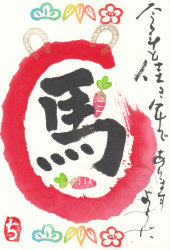 今年も佳き年で
あります
ように
馬
ち